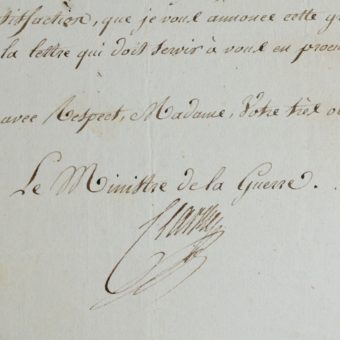 tisfaction, que je vous annonce cette gr
la lettre qui doit servir à vous en procu
avec Respect, Madame, Votre très o
Le Ministre de la Guerre.